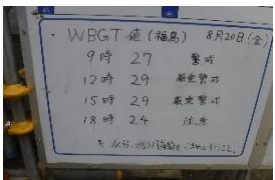 ・WBGT 値(福島) 8月20日(金)
9時 27 警戒
12時 29 厳重警戒
15時 29 厳重警戒
18時 24 注意
水分、塩分補給を こまめに